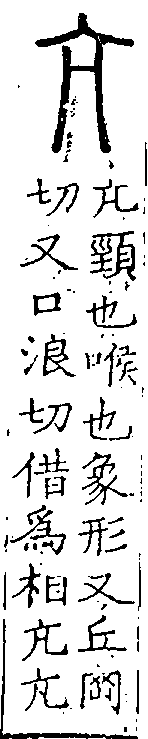 亢
亢頸也喉也象形又丘岡
切又口浪切借爲相亢亢